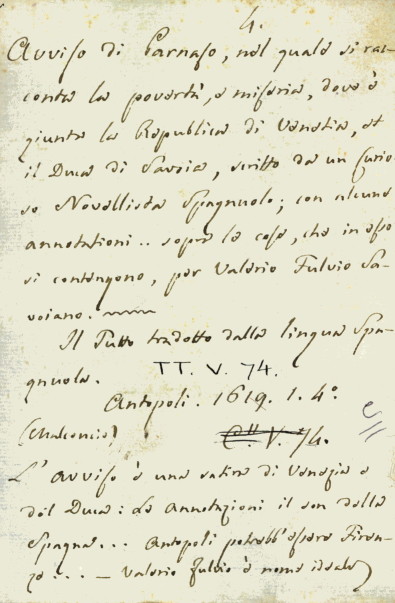 4.
Avviso di Parnaso, nel quale si rac-
conta la povertà, e miseria, dove è
giunta la Republica di Venetia, et
il Duca di Savoia, scritto da un Curio
so Novellista Spagnuolo; con alcune
annotationi.. sopra le cose, che in esso
si contengono, per Valerio Fulvio Sa-
voiano.
Il Tutto tradotto dalla lingua Spa-
gnuola. TT. V. 74.
Antopoli. 1619. 1. 4º.
(Malconcio) V. 74.
L'avviso è una satira di Venezia e
del Duca: Le Annotazioni il son della
Spagna... Antopoli potrebb'essere Firen-
ze... – Valerio Fulvio è nome ideale)